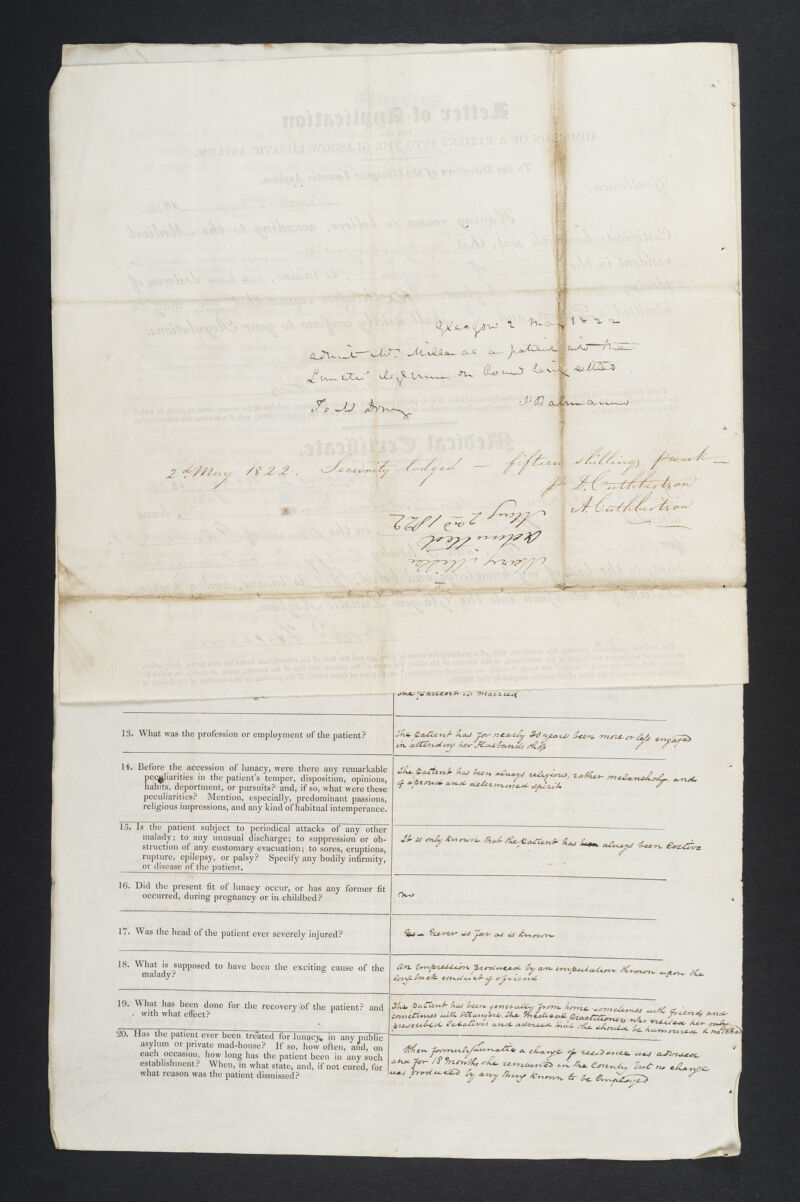 Glasgow 2 May 1822
Admit Mrs. Miller as a patient into the
Lunatic Asylum on board being settled
To W Drury
Balmanno
2d. May 1822. Security lodged — fifteen shillings p week —
A. Cuthbertson
Mary Miller
Admitted
May 2nd 1822
The patient is married
13. What was the profession or employment of the patient?
The patient has for nearly 30 years been more or less engaged
in attending her Husbands shop
14. Before the accession of lunacy, were there any remarkable
peculiarities in the patient's temper, disposition, opinions,
habits, deportment, or pursuits? and, if so, what were these
peculiarities? Mention, especially, predominant passions,
religious impressions, and any kind of habitual intemperance.
The patient has been always religious, rather melancholy and
of a proud and determined spirit
15. Is the patient subject to periodical attacks of any other
malady; to any unusual discharge; to suppression or ob-
struction of any customary evacuation; to sores, eruptions,
rupture, epilepsy, or palsy? Specify any bodily infirmity,
or disease of the patient.
It is only known that the patient has been always been Costive
16. Did the present fit of lunacy occur, or has any former fit
occurred, during pregnancy or in childbed?
no
17. Was the head of the patient ever severely injured?
No – Never so far as is known
18. What is supposed to have been the exciting cause of the
malady?
An Impression produced by an imputation thrown upon the
long back conduct of a friend
19. What has been done for the recovery of the patient? and
with what effect?
The patient has been generally from home sometimes with friends and
sometimes with strangers. The Medical Practitioners who visited her only
prescribed laxatives and advised that she should be humoured & watched
20. Has the patient ever been treated for lunacy, in any public
asylum or private mad-house? If so, how often, and, on
each occasion, how long has the patient been in any such
establishment? When, in what state, and, if not cured, for
what reason was the patient dismissed?
When formerly Lunatic a change of residence was advised
and for 18 Months she remained in the Country but no change
was produced by any thing known to be Employed